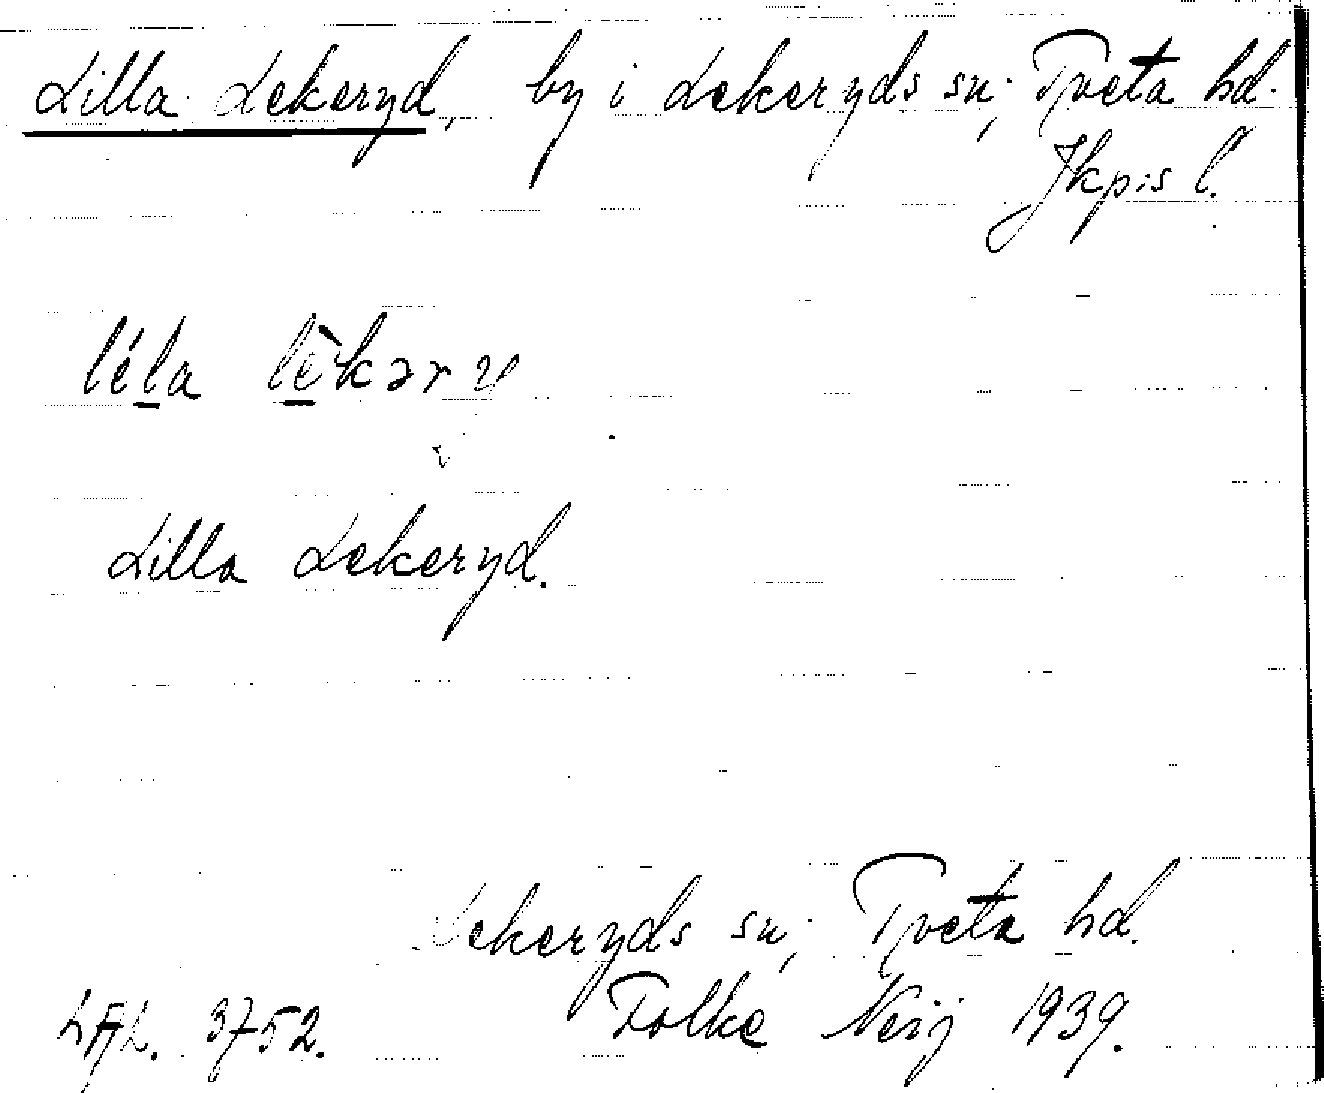 Lilla Lekeryd, by i Lekeryds sn; Tveta hd.
Jkp:s l.
léla lèkəry
Lilla Lekeryd.
Lekeryds sn; Tveta hd.
Folke Neij 1939.
LFL. 3752.